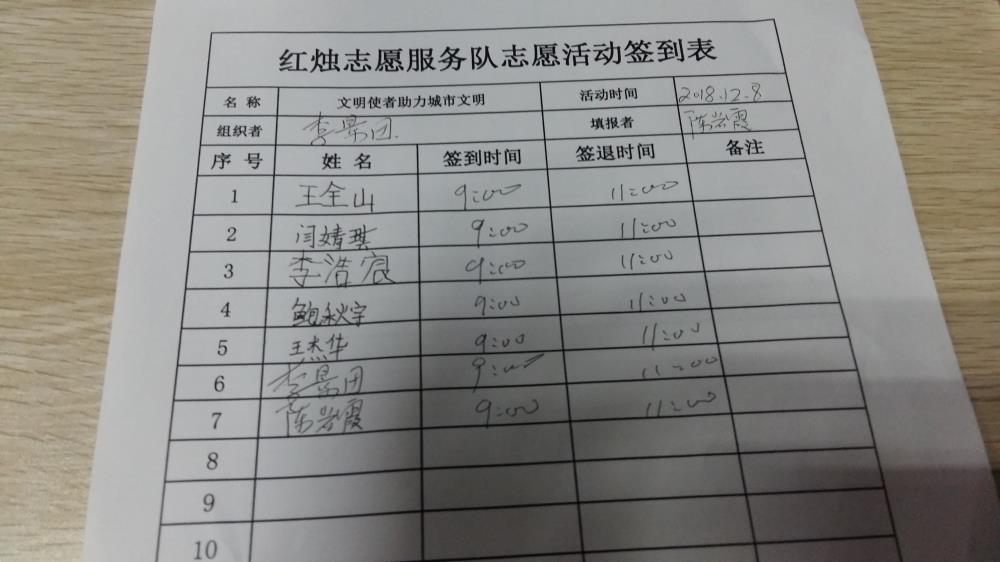 红烛志愿服务队志愿活动签到表
名称 文明使者助力城市文明 活动时间 2018.12.8
组织者 李景团. 填报者 陈岩霞
序号 姓名 签到时间 签退时间 备注
1 王全山 9:00 11:00
2 闫婧琪 9:00 11:00
3 李浩宸 9:00 11:00
4 鲍秋宇 9:00 11:00
5 王杰华 9:00 11:00
6 李景团 9:00 11:00
7 陈岩霞 9:00 11:00
8
9
10